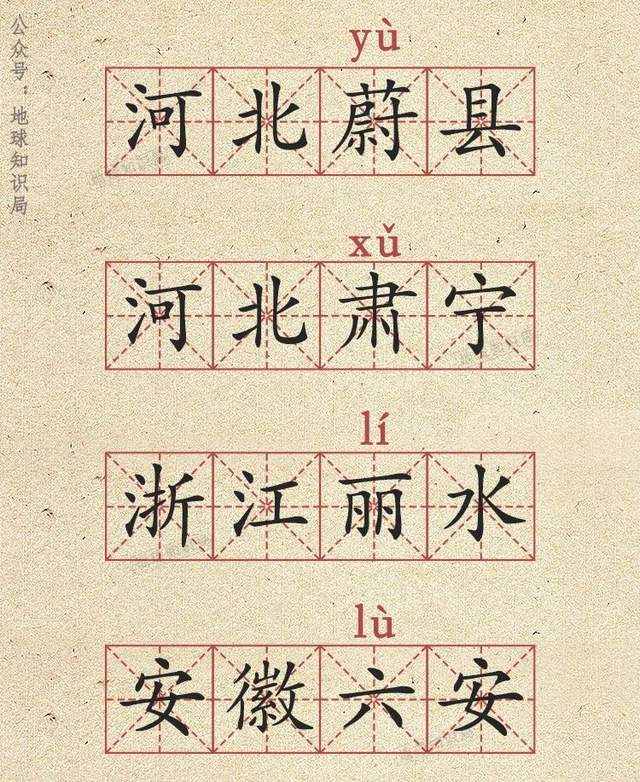 公众号：地球知识局
yù
河北蔚县
xǔ
河北肃宁
lí
浙江丽水
lù
安徽六安